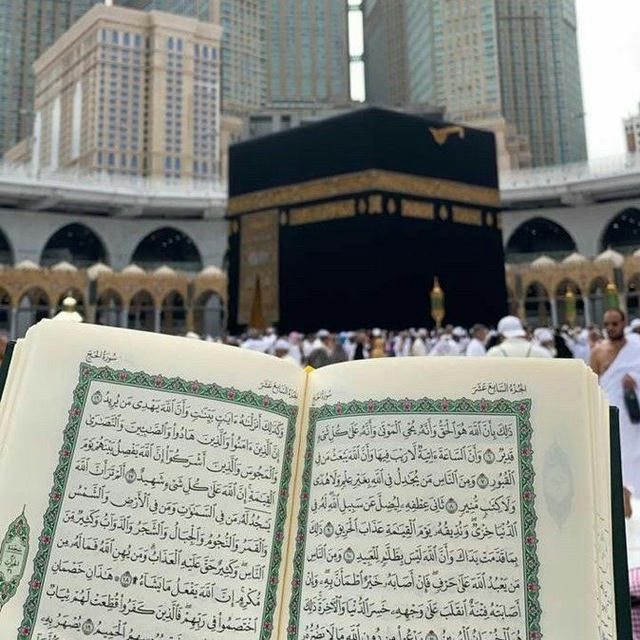 الجزء السابع عشر
ذَٰلِكَ بِأَنَّ ٱللَّهَ هُوَ ٱلْحَقُّ وَأَنَّهُۥ يُحْىِ ٱلْمَوْتَىٰ وَأَنَّهُۥ عَلَىٰ كُلِّ شَىْءٍ
قَدِيرٌ ٦ وَأَنَّ ٱلسَّاعَةَ ءَاتِيَةٌ لَّا رَيْبَ فِيهَا وَأَنَّ ٱللَّهَ يَبْعَثُ مَن فِى
ٱلْقُبُورِ ٧ وَمِنَ ٱلنَّاسِ مَن يُجَٰدِلُ فِى ٱللَّهِ بِغَيْرِ عِلْمٍ وَلَا هُدًى
وَلَا كِتَٰبٍ مُّنِيرٍ ٨ ثَانِىَ عِطْفِهِۦ لِيُضِلَّ عَن سَبِيلِ ٱللَّهِ لَهُۥ فِى
ٱلدُّنْيَا خِزْىٌ وَنُذِيقُهُۥ يَوْمَ ٱلْقِيَٰمَةِ عَذَابَ ٱلْحَرِيقِ ٩ ذَٰلِكَ
بِمَا قَدَّمَتْ يَدَاكَ وَأَنَّ ٱللَّهَ لَيْسَ بِظَلَّٰمٍ لِّلْعَبِيدِ ١٠ وَمِنَ ٱلنَّاسِ
مَن يَعْبُدُ ٱللَّهَ عَلَىٰ حَرْفٍ فَإِنْ أَصَابَهُۥ خَيْرٌ ٱطْمَأَنَّ بِهِۦ وَإِنْ
أَصَابَتْهُ فِتْنَةٌ ٱنقَلَبَ عَلَىٰ وَجْهِهِۦ خَسِرَ ٱلدُّنْيَا وَٱلْءَاخِرَةَ ذَٰلِكَ
هُوَ ٱلْخُسْرَانُ ٱلْمُبِينُ ١١ يَدْعُواْ مِن دُونِ ٱللَّهِ مَا لَا يَضُرُّهُۥ
الجزء السابع عشر
سورة الحج
وَكَذَٰلِكَ أَنزَلْنَٰهُ ءَايَٰتٍۭ بَيِّنَٰتٍ وَأَنَّ ٱللَّهَ يَهْدِى مَن يُرِيدُ ١٦
إِنَّ ٱلَّذِينَ ءَامَنُواْ وَٱلَّذِينَ هَادُواْ وَٱلصَّٰبِـِٔينَ وَٱلنَّصَٰرَىٰ
وَٱلْمَجُوسَ وَٱلَّذِينَ أَشْرَكُوٓاْ إِنَّ ٱللَّهَ يَفْصِلُ بَيْنَهُمْ يَوْمَ
ٱلْقِيَٰمَةِ إِنَّ ٱللَّهَ عَلَىٰ كُلِّ شَىْءٍ شَهِيدٌ ١٧ أَلَمْ تَرَ أَنَّ ٱللَّهَ
يَسْجُدُ لَهُۥ مَن فِى ٱلسَّمَٰوَٰتِ وَمَن فِى ٱلْأَرْضِ وَٱلشَّمْسُ
وَٱلْقَمَرُ وَٱلنُّجُومُ وَٱلْجِبَالُ وَٱلشَّجَرُ وَٱلدَّوَآبُّ وَكَثِيرٌ مِّنَ
ٱلنَّاسِ وَكَثِيرٌ حَقَّ عَلَيْهِ ٱلْعَذَابُ وَمَن يُهِنِ ٱللَّهُ فَمَا لَهُۥ مِن
مُّكْرِمٍ إِنَّ ٱللَّهَ يَفْعَلُ مَا يَشَآءُ ١٨ هَٰذَانِ خَصْمَانِ
ٱخْتَصَمُواْ فِى رَبِّهِمْ فَٱلَّذِينَ كَفَرُواْ قُطِّعَتْ لَهُمْ ثِيَابٌ